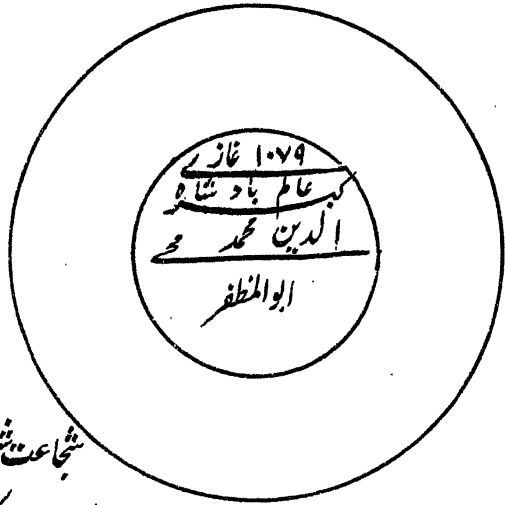 ۱۰۷۹ غازی
عالمگیر باد شاہ
الدین محمد محی
ابوالمظفر
شجاعت